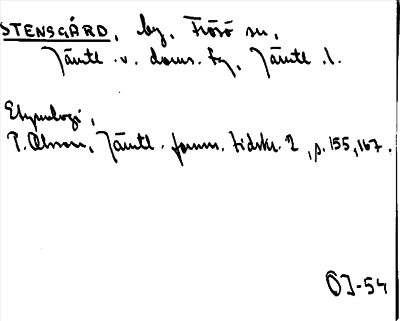 STENSGÅRD, by, Frösö sn,
Jämtl. v. doms. fg, Jämtl. l.
Etymologi,
P. Olsson, Jämtl. fornm. tidskr. 2, s. 155, 167.
OJ-54